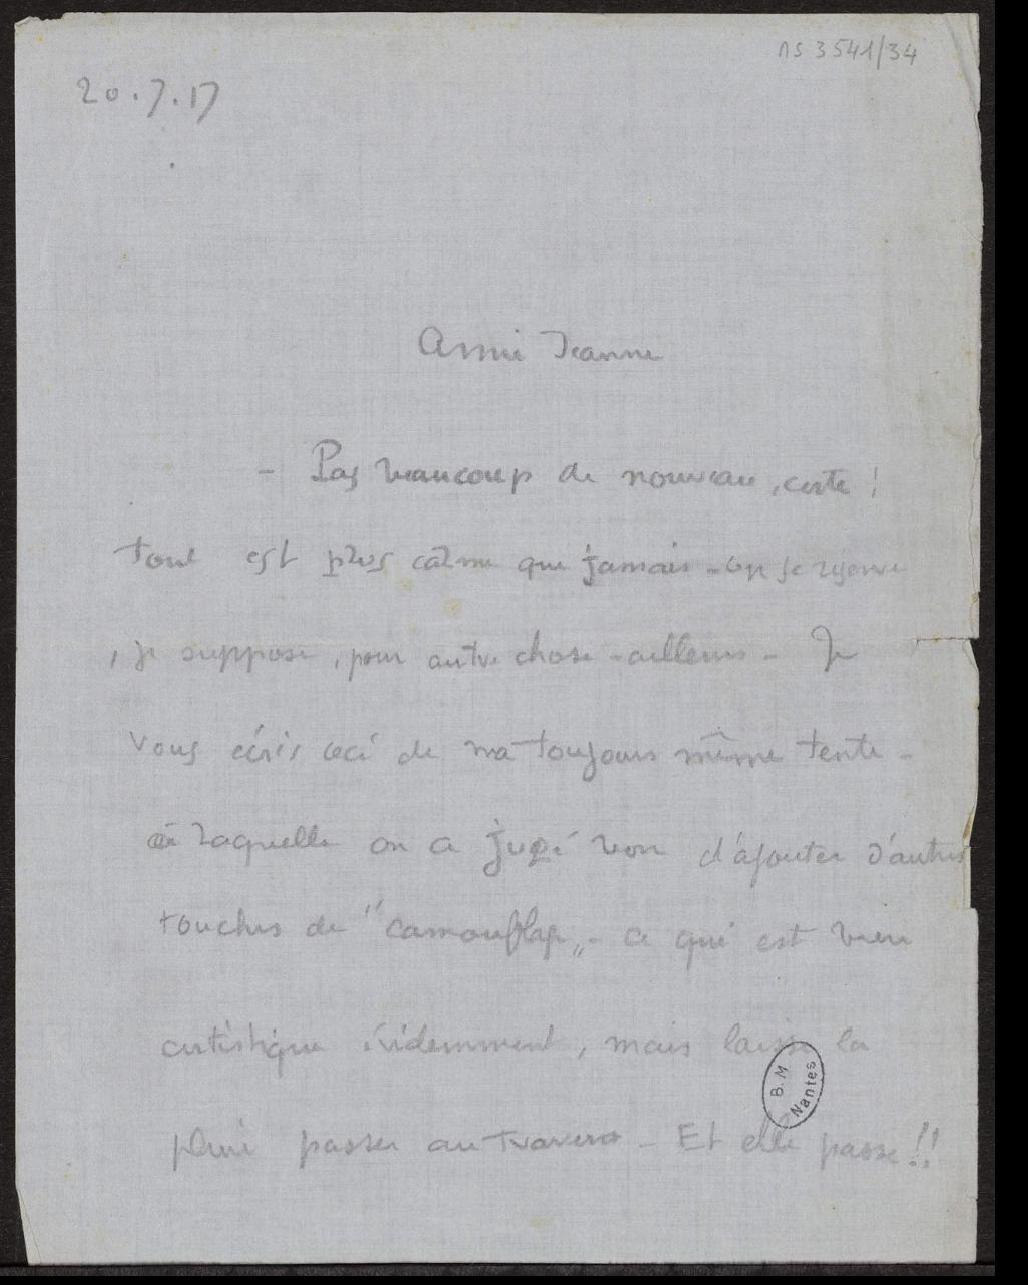 ns 3541/34
20.7.17
Amie Jeanne
- Pas beaucoup de nouveau, certe !
tout est plus calme que jamais - on se réserve
, je suppose, pour autre chose - ailleurs - Je
vous écris ceci de ma toujours même tente -
à laquelle on a jugé bon d'ajouter d'autres
touches de "camouflage" - ce qui est bien
artistique évidemment, mais laisse la
pluie passer au travers - Et elle passe !!
B. M
Nantes